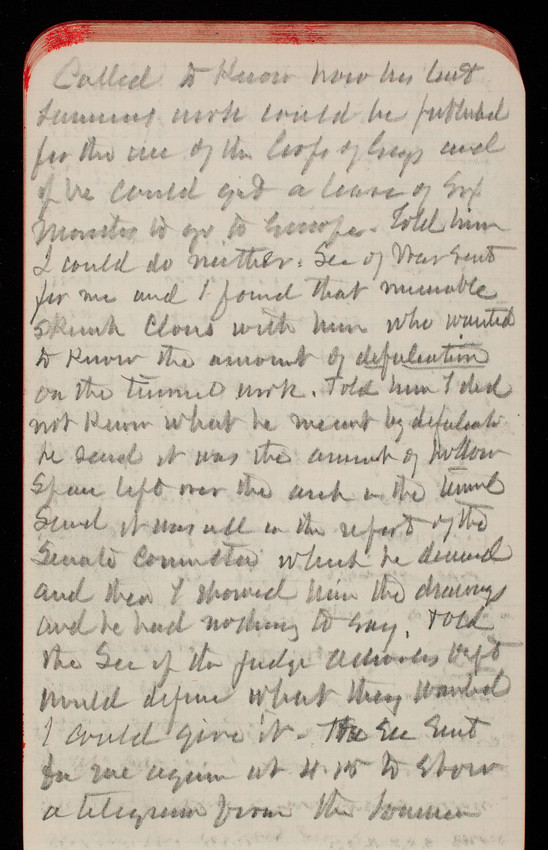 Called to Know how his last
work could be published
for the use of the Corps of Engs and
if he could get a leave of six
Months to go to Europe. Told him
I could do neither. Sec of War sent
for me and I found that miserable
skunk Clous with him who wanted
to Know the amount of defalcation
on the tunnel work. Told him I did
not Know what he meant by defalcatn
he said it was the amount of hollow
space left over the arch in the tunnel
Said it was all in the report of the
Senate Committee which he denied
and then I showed him the drawings
and he had nothing to say. Told
the Sec if the Judge Advocates Dept
would define what they wanted
I could give it. The Sec sent
for me again at 4.15 to show
a telegram from the